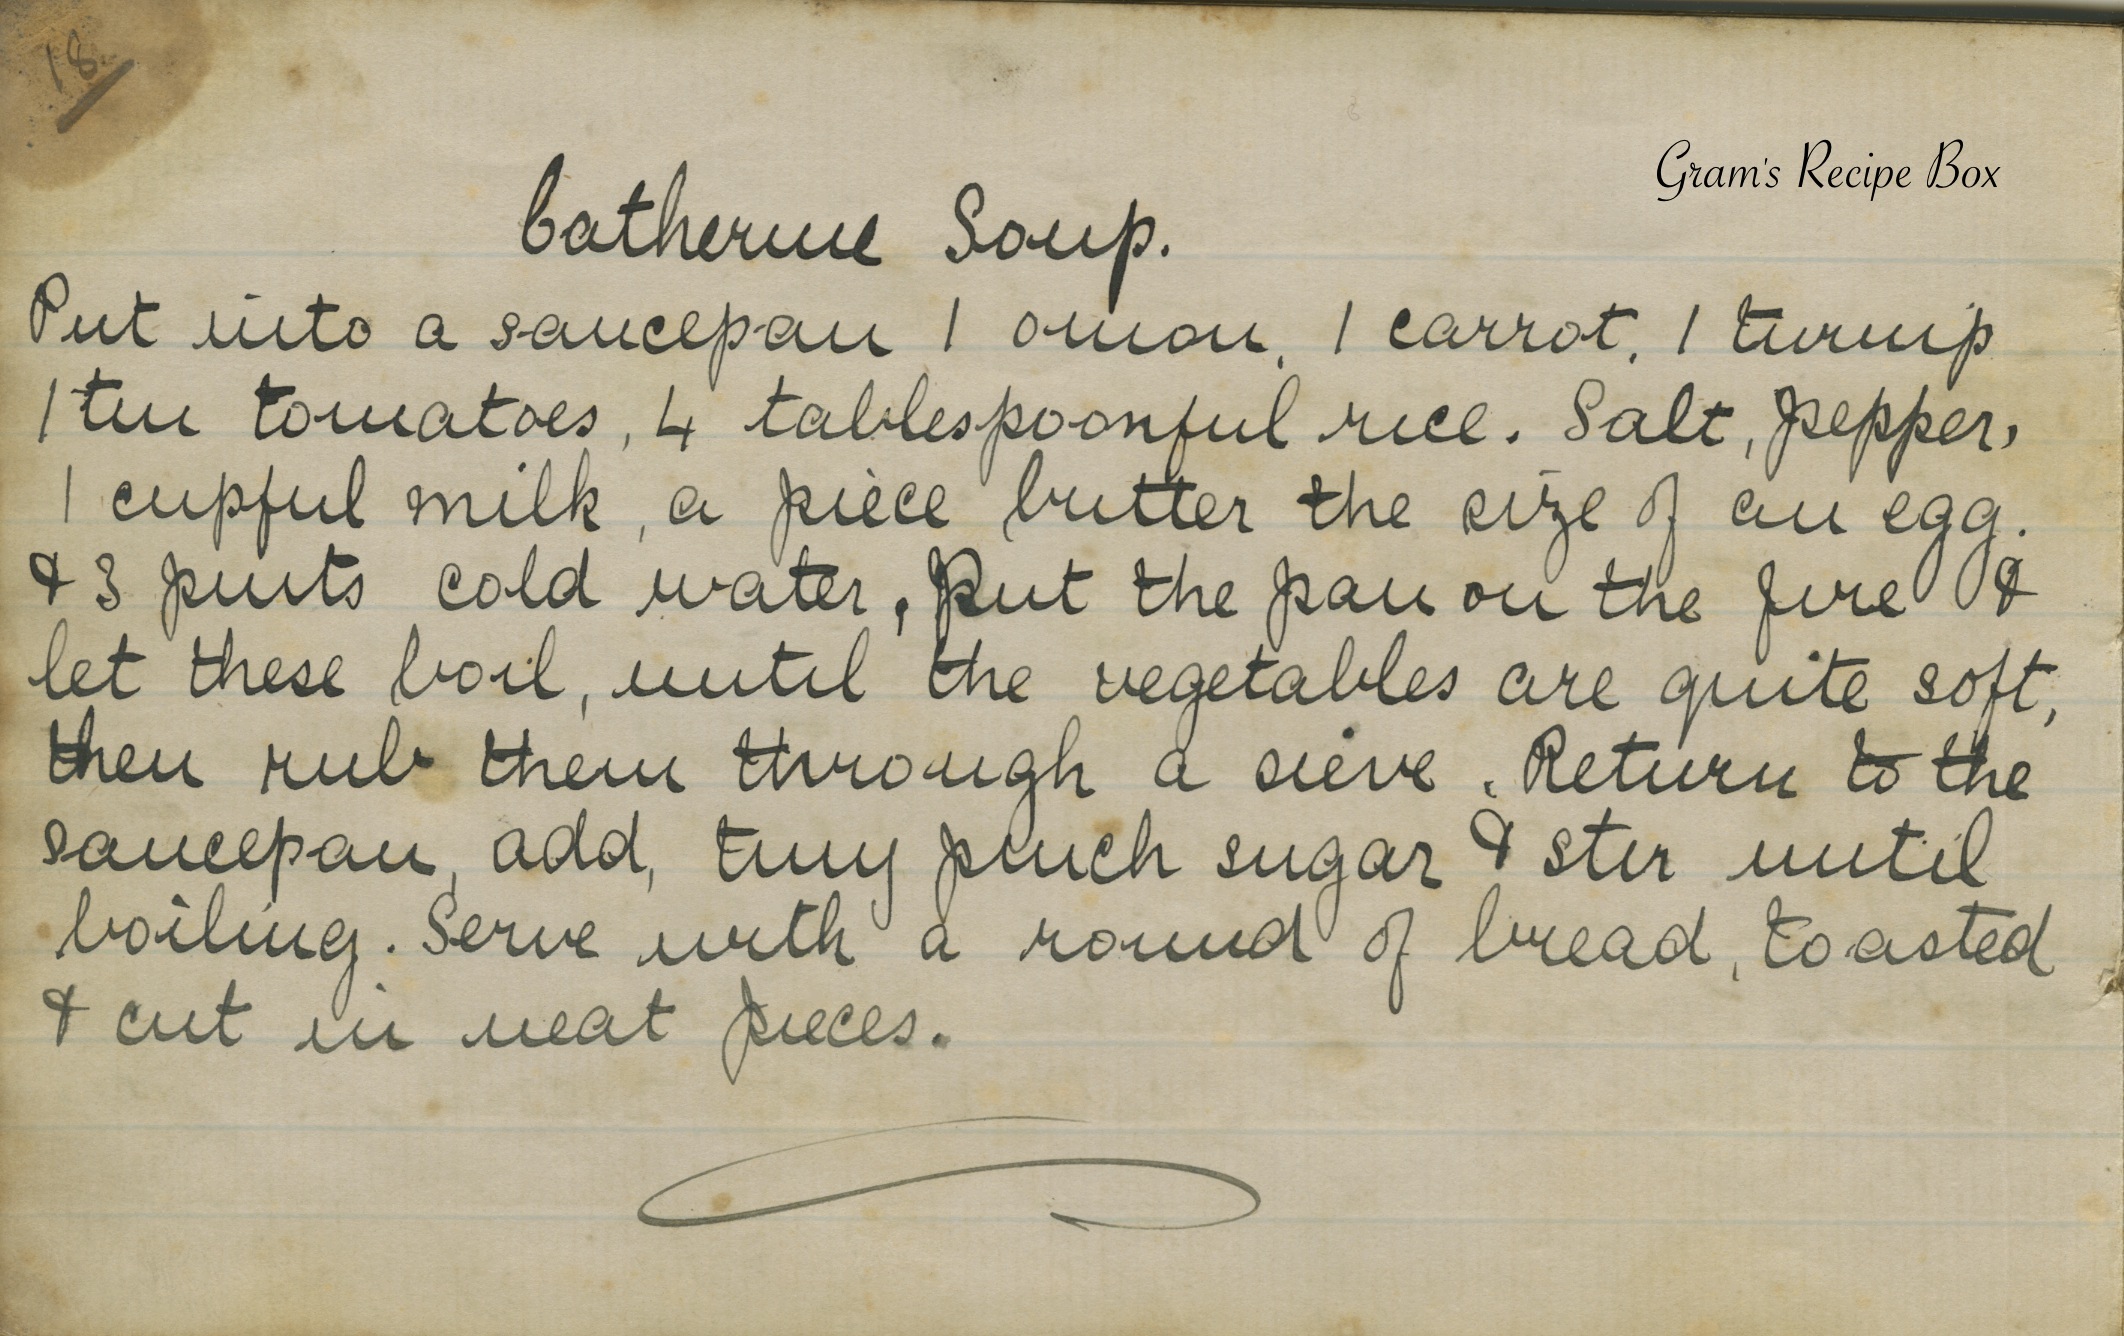 18
Gram's Recipe Box
Catherine Soup.
Put into a saucepan 1 onion, 1 carrot, 1 turnip
1 tin tomatoes, 4 tablespoonful rice. Salt, pepper,
1 cupful milk, a piece butter the size of an egg.
& 3 pints cold water. Put the pan on the fire &
let these boil, until the vegetables are quite soft,
then rub them through a sieve. Return to the
saucepan, add, tiny pinch sugar & stir until
boiling. Serve with a round of bread, toasted
& cut in neat pieces.